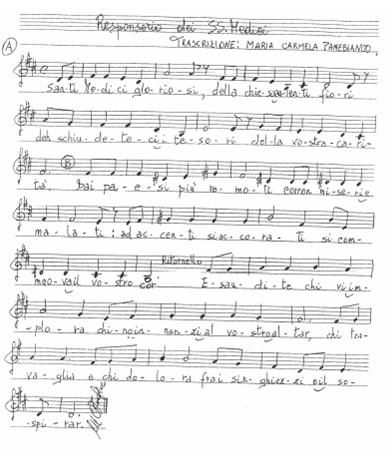 Responsorio dei SS. Medici
TRASCRIZIONE: MARIA CARMELA PANEBIANCO.
A
San-ti Me-di-ci glo-rio-si, della chie-sa ten-ti fio-ri
deh schiu-de-te-ci i te-so-ri del-la vo-stra ca-ri-
B
tà. Dai pa-e-si più re-mo-ti corron mi-se-ri e
ma-la-ti: ad ac-cen-ti sì ac-co-ra-ti si com-
Ritornello
mov-a il vo-stro cor. E-sau-di-te chi v'im-
plo-ra chi no in-nan-zi al vo-stro al-tar, chi tra-
va-glia e chi do-lo-ra fra i sin-ghioz-zi e il so-
-spi-rar.